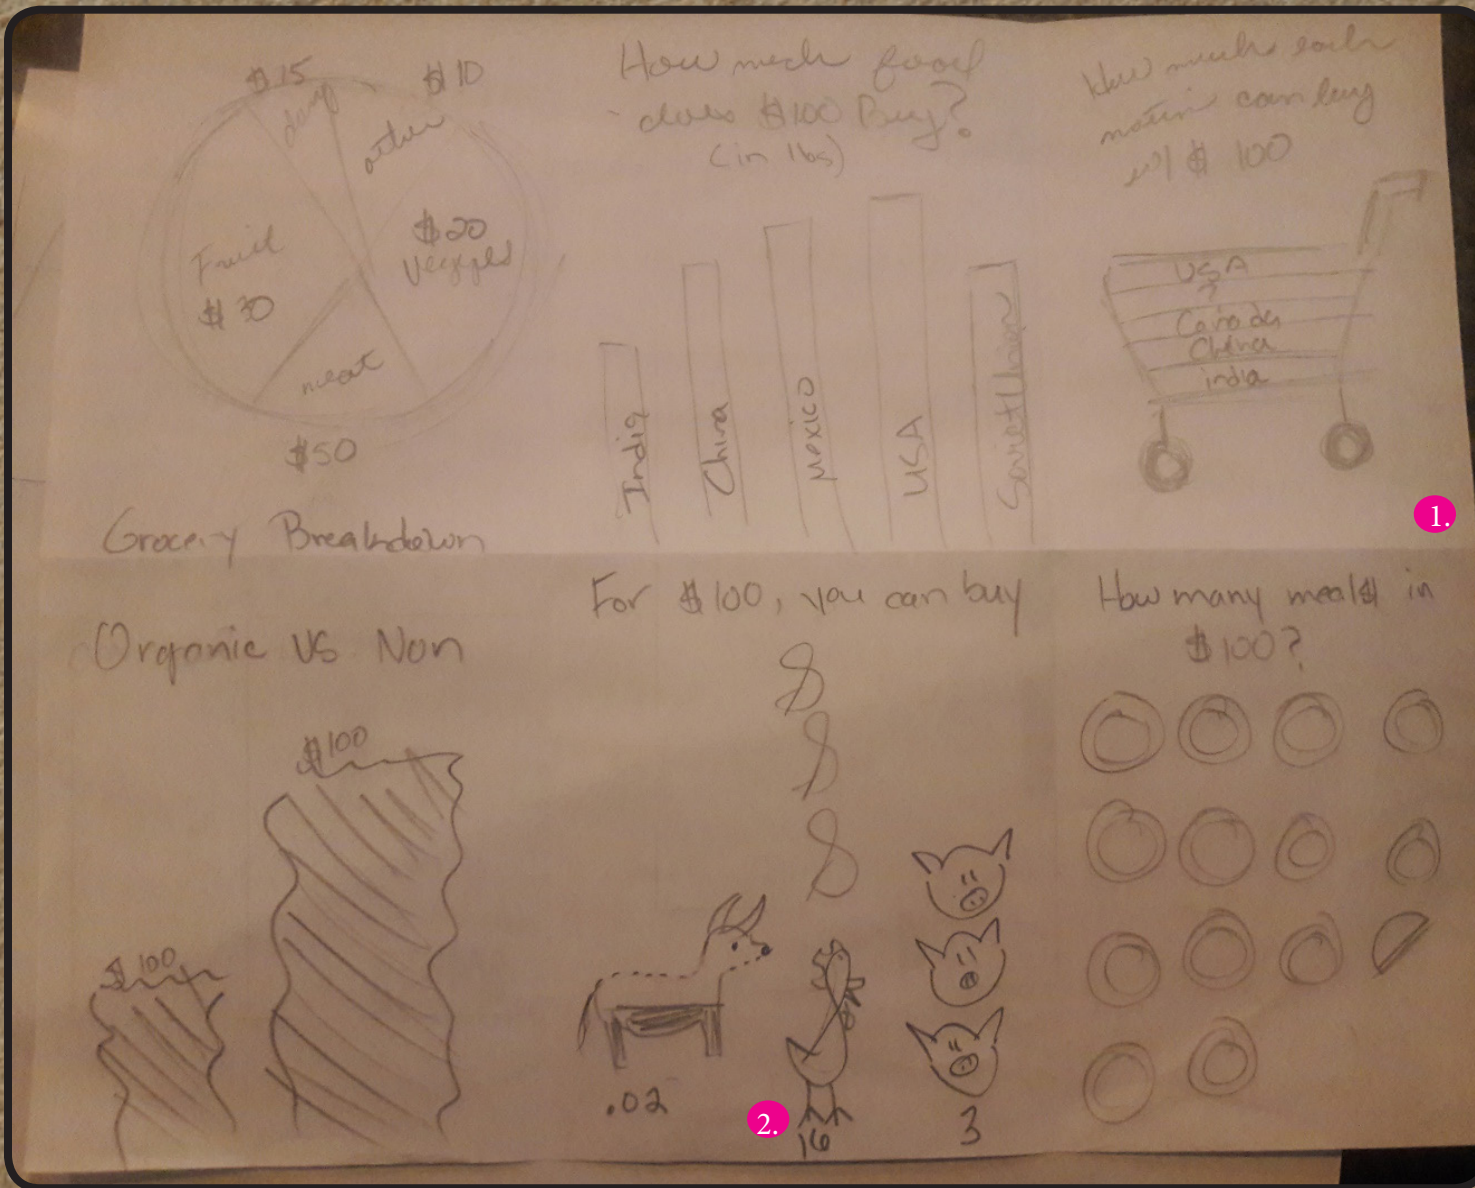 $15
$10
dairy
other
Fruit
$30
$20
Veggies
meat
$50
Grocery Breakdown
How much food
does $100 Buy?
(in lbs)
India
China
Mexico
USA
Soviet Union
How much each
nation can buy
w/ $100
USA
?
Canada
China
india
1.
Organic VS Non
$100
$100
For $100, you can buy
.02
2.
16
3
How many meals in
$100?